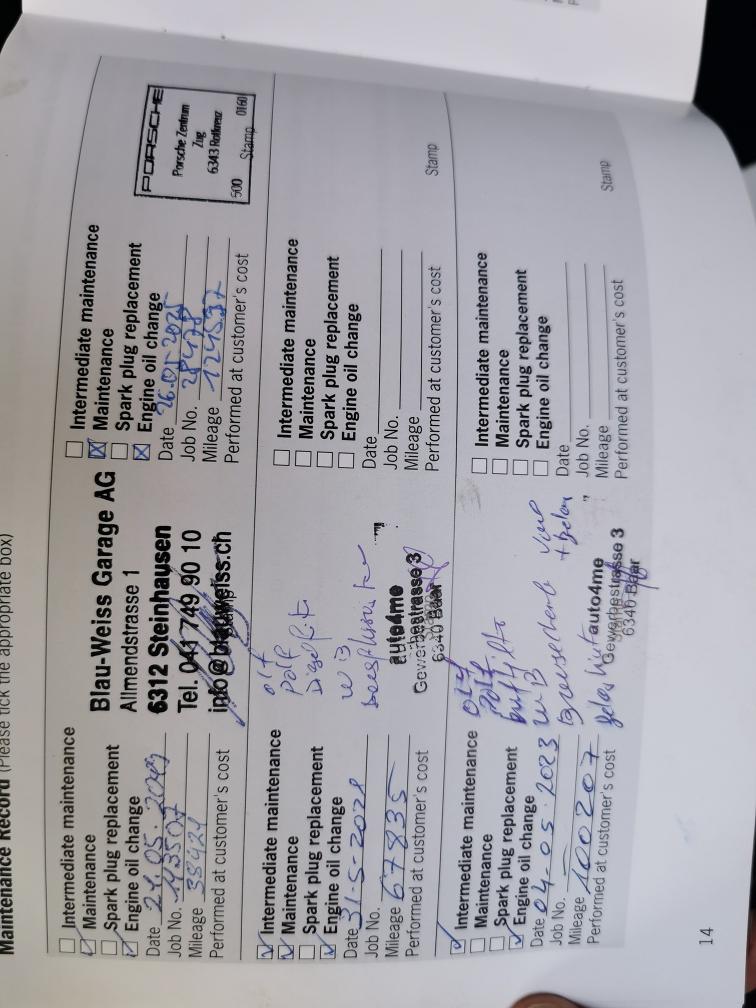 Maintenance Record (Please tick the appropriate box)
Intermediate maintenance
Maintenance
Spark plug replacement
Engine oil change
Date 21.05.2019
Job No. 143507
Mileage 38424
Performed at customer's cost
Blau-Weiss Garage AG
Allmendstrasse 1
6312 Steinhausen
Tel. 041 749 90 10
info@blauweiss.ch
Intermediate maintenance
Maintenance
Spark plug replacement
Engine oil change
Date 26.05.2025
Job No. 28478
Mileage 124537
Performed at customer's cost
PORSCHE
Porsche Zentrum
Zug
6343 Rotkreuz
500 Stamp 0160
Intermediate maintenance
Maintenance
Spark plug replacement
Engine oil change
Date 31-5-2021
Job No.
Mileage 67835
Performed at customer's cost
Ölf
Polf
WB
auto4me
Gewerbestrasse 3
6340 Baar
Intermediate maintenance
Maintenance
Spark plug replacement
Engine oil change
Date
Job No.
Mileage
Performed at customer's cost
Stamp
Intermediate maintenance
Maintenance
Spark plug replacement
Engine oil change
Date 04-05-2023
Job No.
Mileage 100207
Performed at customer's cost
Ölf
Polf
WB
auto4me
Gewerbestrasse 3
6340 Baar
Intermediate maintenance
Maintenance
Spark plug replacement
Engine oil change
Date
Job No.
Mileage
Performed at customer's cost
Stamp
14